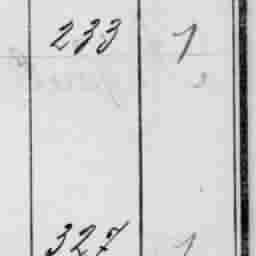 233 1
327 1